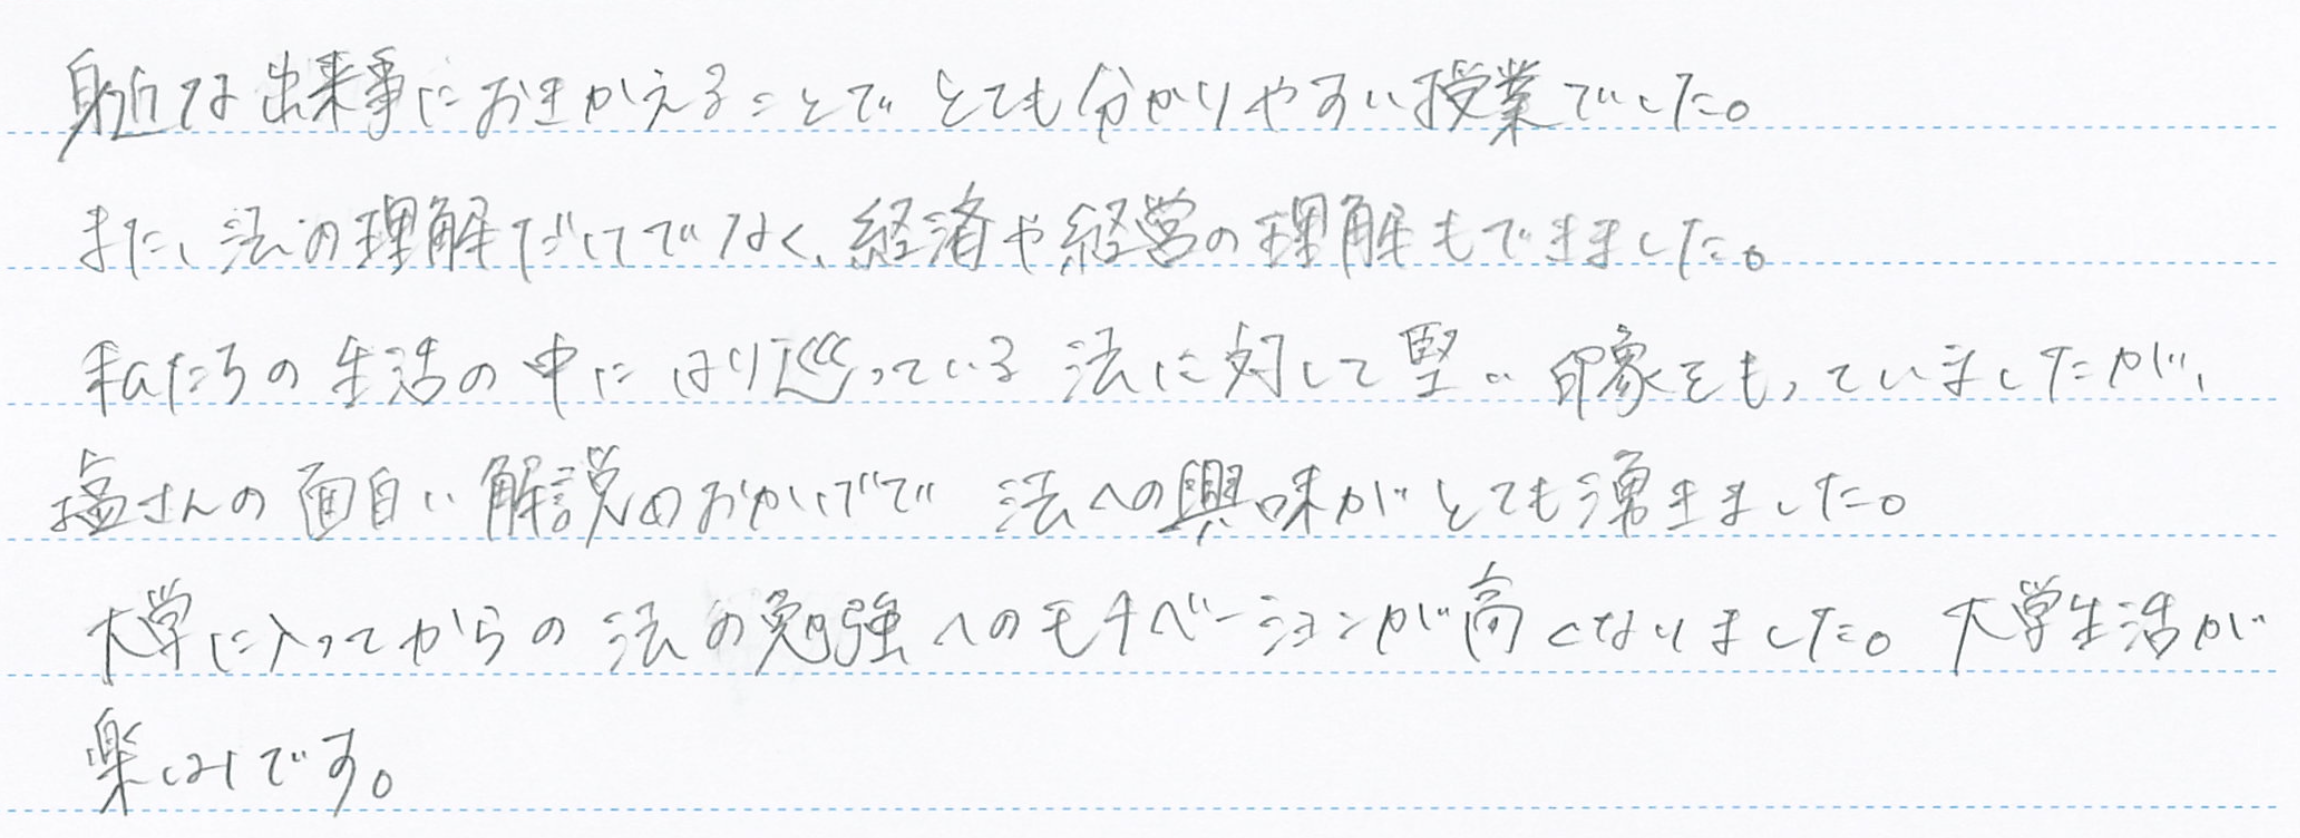 身近な出来事におきかえることでとても分かりやすい授業でした。
また、法の理解だけでなく、経済や経営の理解もできました。
私たちの生活の中にはり巡っている法に対して堅い印象をもっていましたが、
塩さんの面白い解説のおかげで法への興味がとても湧きました。
大学に入ってからの法の勉強へのモチベーションが高くなりました。大学生活が
楽しみです。